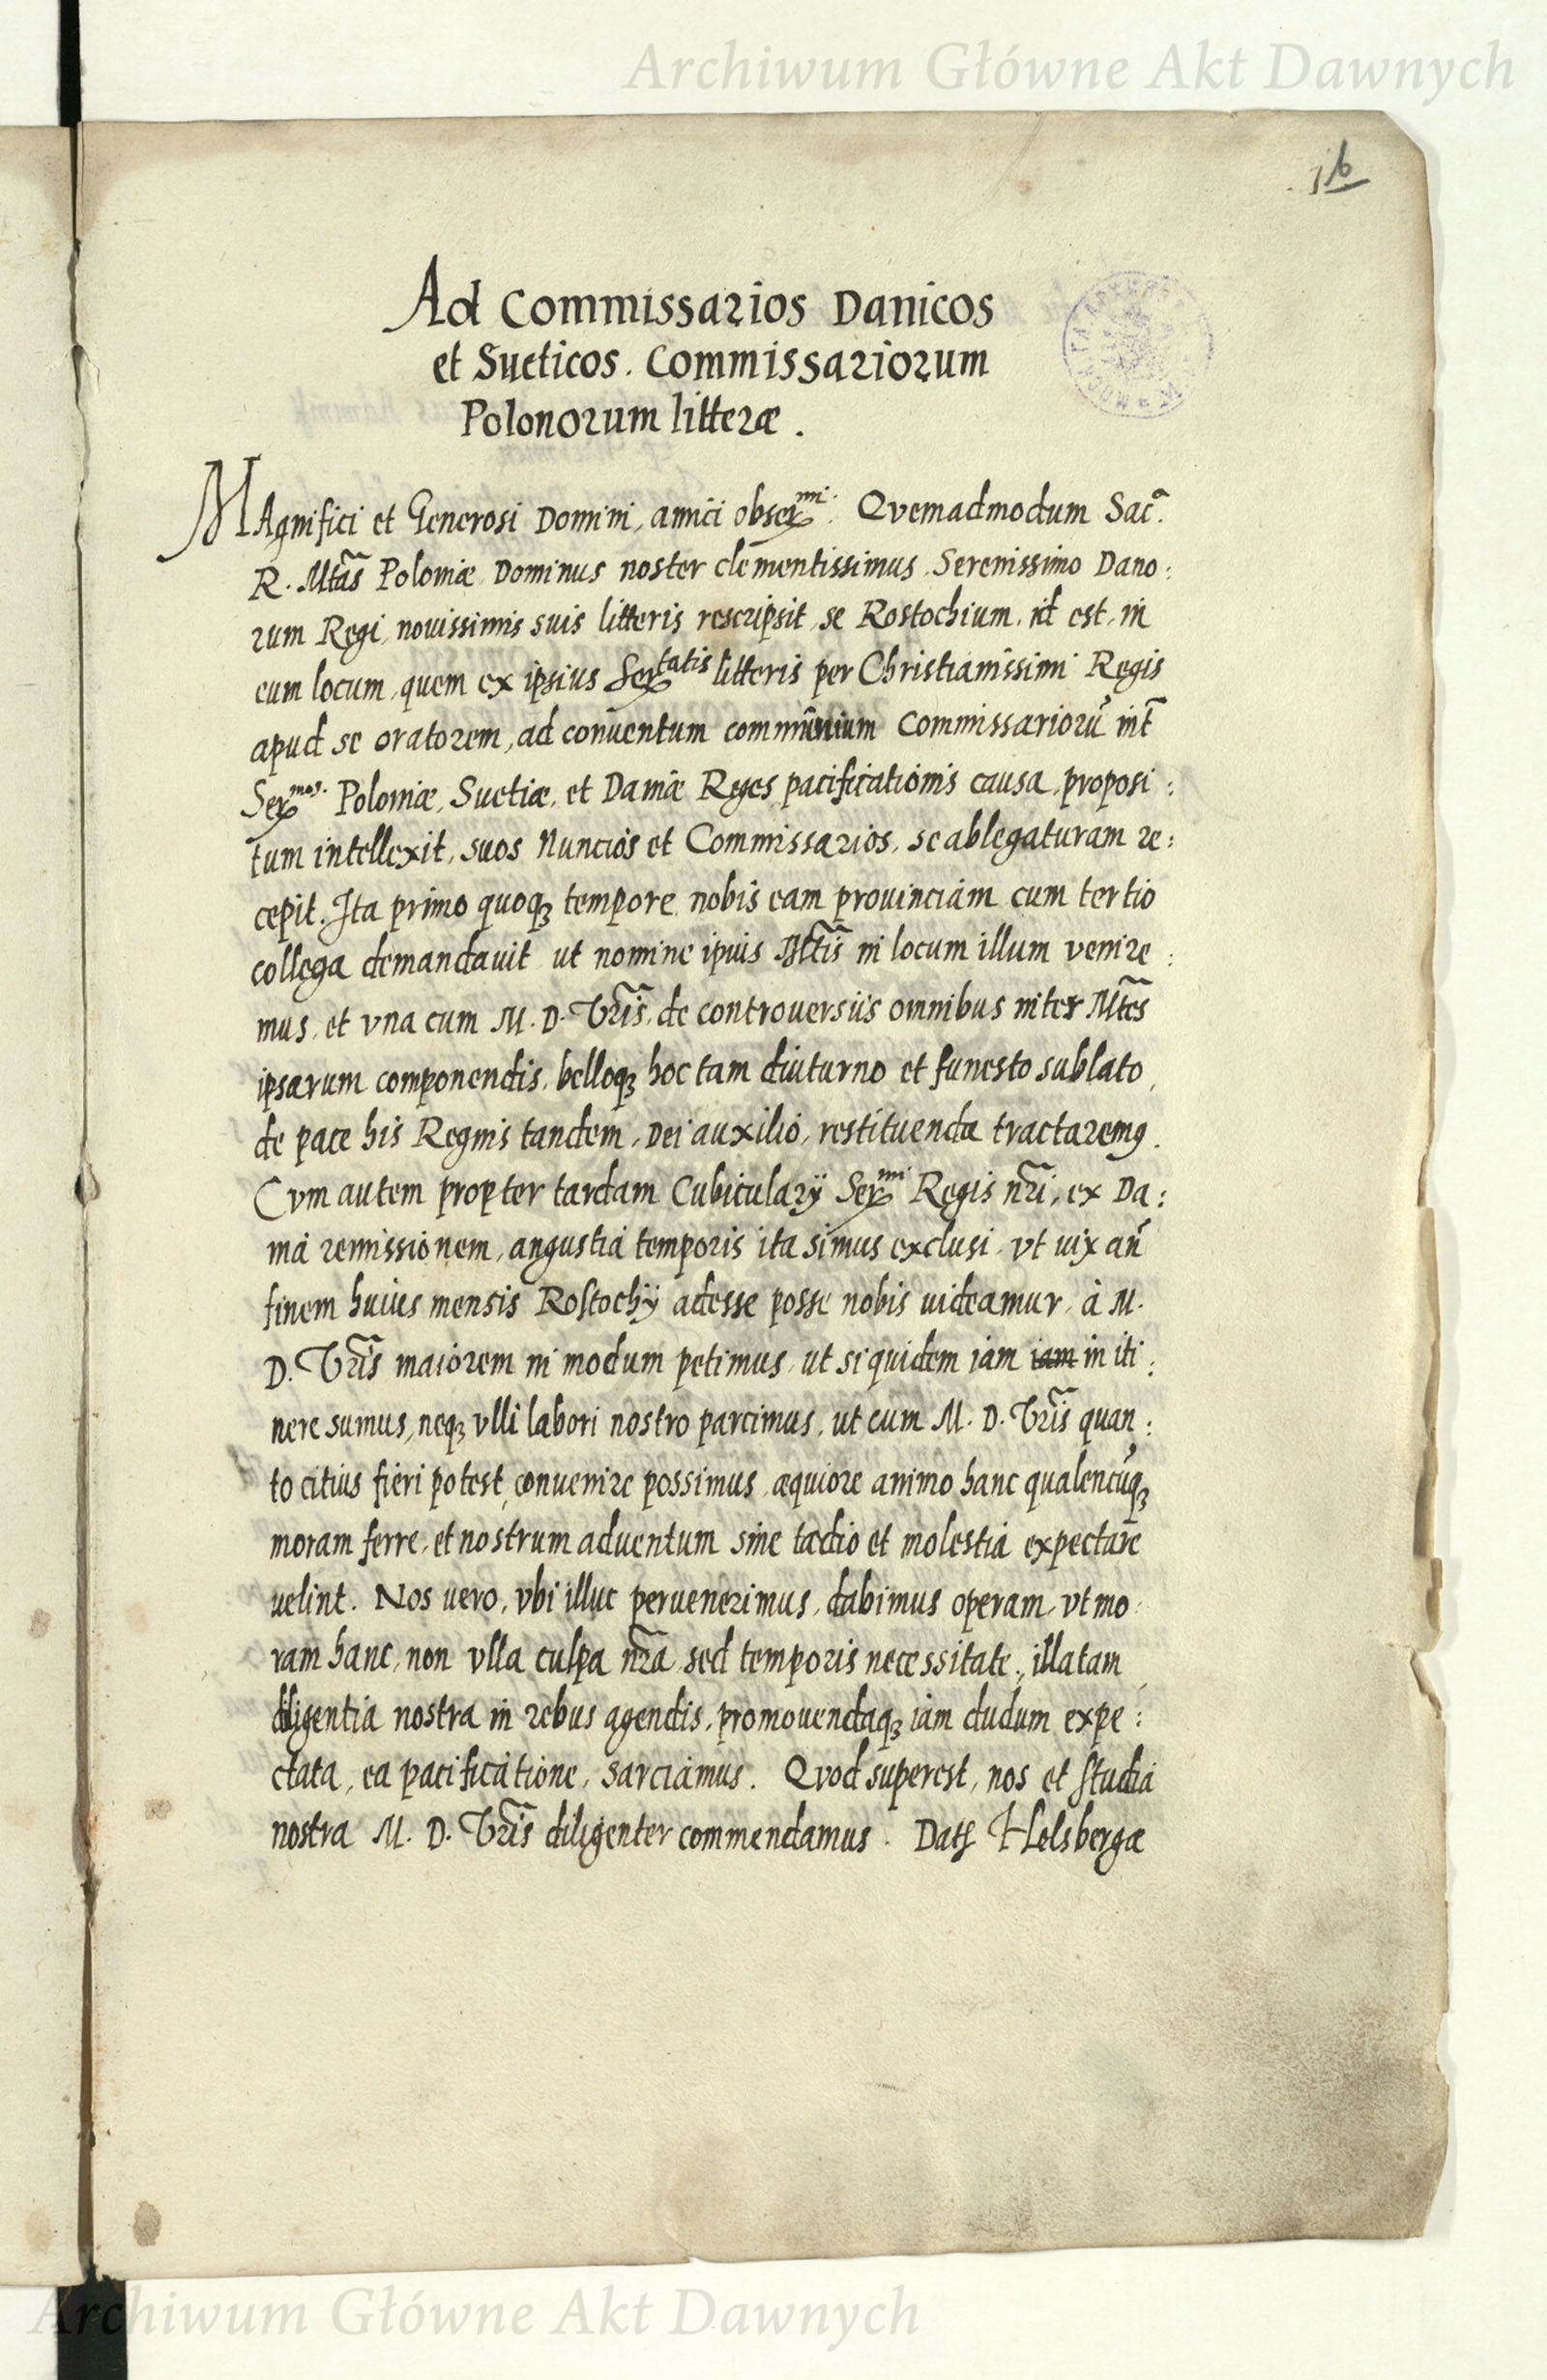 Archiwum Główne Akt Dawnych
16
Ad Commissarios Danicos
et Sueticos. Commissariorum
Polonorum litteræ.
MAgnifici et Generosi Domini, amici obser^mi. Qvemadmodum Sac^a.
R. Mtãs Poloniæ Dominus noster clementissimus Serenissimo Dano:
rum Regi, nouissimis suis litteris rescripsit, se Rostochium, id est, in
eum locum, quem ex ipsius Ser^tatis litteris per Christianissimi Regis
apud se oratorem, ad conuentum Commissariorũ int̃
Ser^mos. Poloniæ, Suetiæ, et Daniæ Reges pacificationis causa, proposi:
tum intellexit, suos Nuncios et Commissarios, se ablegaturam re:
cepit. Ita primo quoqꝫ tempore nobis eam prouinciam cum tertio
collega demandauit ut nomine ipius Mt̃is in locum illum venire:
mus, et vna cum M. D. Vr̃is, de controuersiis omnibus inter Mt̃es
ipsarum componendis, belloqꝫ hoc tam diuturno et funesto sublato,
de pace his Regnis tandem, Dei auxilio, restituenda tractaremꝯ.
Cvm autem propter tardam Cubicularÿ Ser^mi Regis nr̃i, ex Da:
nia remissionem, angustia temporis ita simus exclusi, vt uix añ
finem huius mensis Rostochÿ adesse posse nobis uideamur, à M.
D. Vr̃is maiorem in modum petimus, ut siquidem iam iam in iti:
nere sumus, neqꝫ vlli labori nostro parcimus, ut cum M. D. Vr̃is quan:
to citius fieri potest, conuenire possimus, æquiore animo hanc qualencũqꝫ
moram ferre, et nostrum aduentum sine tædio et molestia expectare
uelint. Nos uero, vbi illuc peruenerimus, dabimus operam, vt mo:
ram hanc, non vlla culpa nr̃a, sed temporis necessitate, illatam,
diligentia nostra in rebus agendis, promouendaqꝫ iam dudum expe:
ctata, ea pacificatione, sarciamus. Qvod superest, nos et studia
nostra M. D. Vr̃is diligenter commendamus. Datꝭ Helsbergæ
Archiwum Główne Akt Dawnych